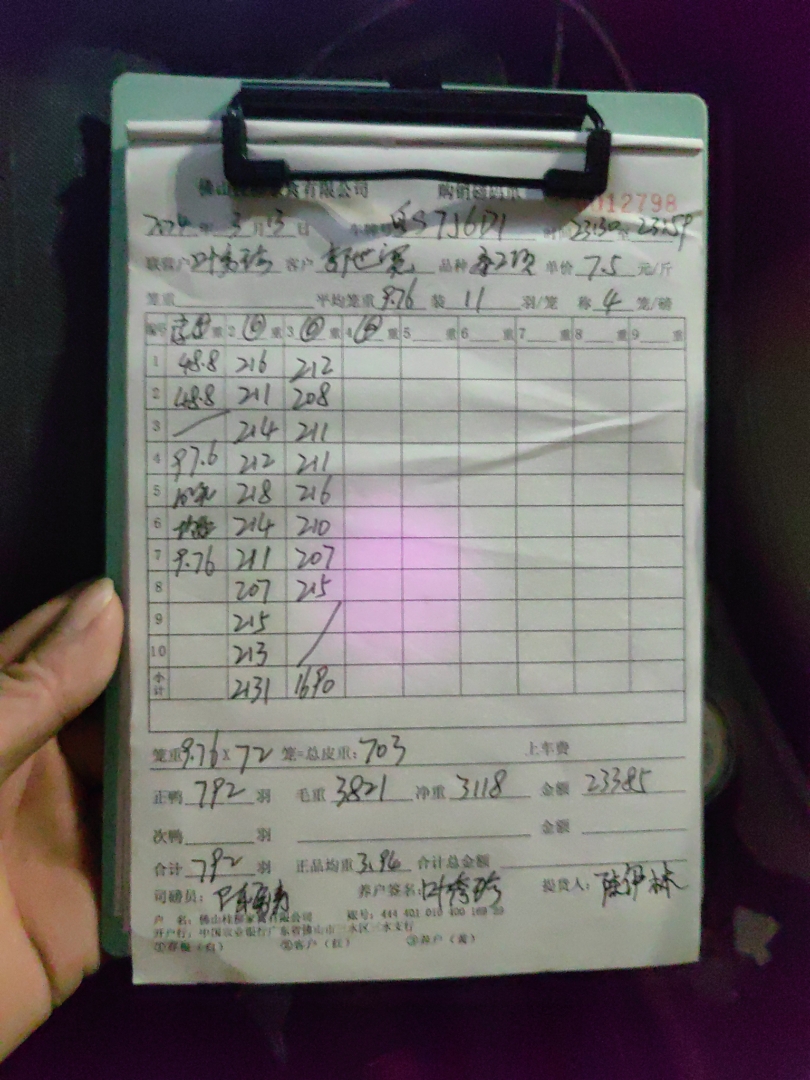 佛山桂柳家禽有限公司 购销过磅单 0012798
2024年3月13日 车牌号 时间23:30至23:59
联营户 客户 品种 单价7.5元/斤
笼重 平均笼重9.76 装11羽/笼 称4笼/磅
编号 重 2 重 3 重 4 重 5 重 6 重 7 重 8 重 9 重
1 48.8 216 212
2 48.8 211 208
3 214 211
4 97.6 212 211
5 218 216
6 214 210
7 9.76 211 207
8 207 215
9 215
10 213
小计 2131 1690
笼重9.76×72笼=总皮重:703 上车费
正鸭792羽 毛重3821 净重3118 金额23385
次鸭 羽 金额
合计792羽 正品均重3.94 合计总金额
司磅员: 养户签名: 提货人:陈伊林
户 名:佛山桂柳家禽有限公司 账号:444 401 010 400 169 89
开户行:中国农业银行广东省佛山市三水区三水支行
①存根(白) ②客户(红) ③养户(黄)